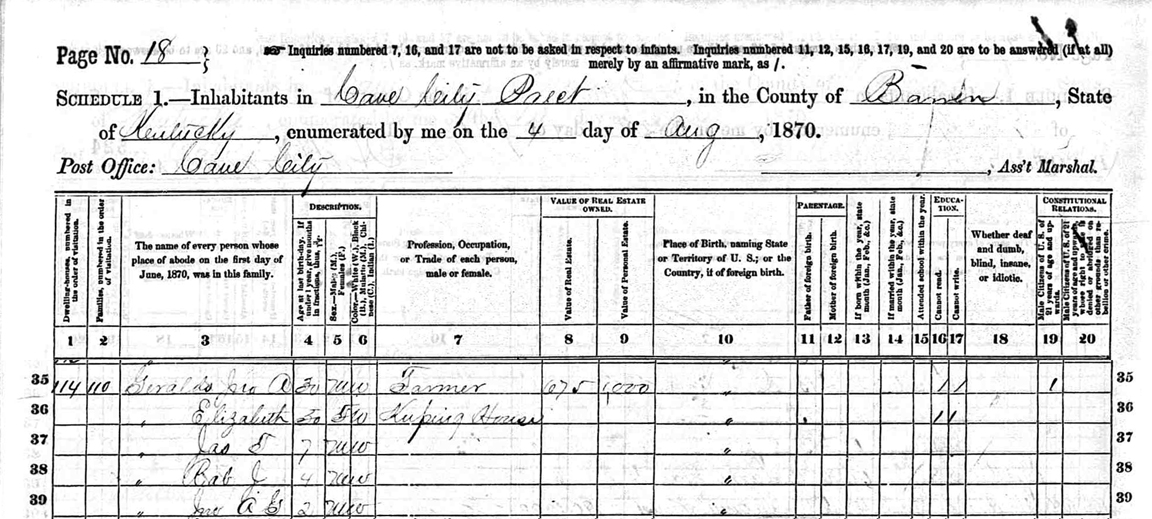 Page No. 18 } ☞ Inquiries numbered 7, 16, and 17 are not to be asked in respect to infants. Inquiries numbered 11, 12, 15, 16, 17, 19, and 20 are to be answered (if at all)
merely by an affirmative mark, as /.
SCHEDULE 1.—Inhabitants in Cave City Prect, in the County of Barren, State
of Kentucky, enumerated by me on the 4 day of Aug, 1870.
Post Office: Cave City , Ass't Marshal.
Dwelling-houses, numbered in the order of visitation.
Families, numbered in the order of visitation.
The name of every person whose place of abode on the first day of June, 1870, was in this family.
DESCRIPTION.
Age at last birth-day. If under 1 year, give months in fractions, thus,
Sex.—Males (M.), Females (F.)
Color.—White (W.), Black (B.), Mulatto (M.), Chinese (C.), Indian (I.)
Profession, Occupation, or Trade of each person, male or female.
VALUE OF REAL ESTATE OWNED.
Value of Real Estate.
Value of Personal Estate.
Place of Birth, naming State or Territory of U. S.; or the Country, if of foreign birth.
PARENTAGE.
Father of foreign birth.
Mother of foreign birth.
If born within the year, state month (Jan., Feb., &c.)
If married within the year, state month (Jan., Feb., &c.)
Attended school within the year.
EDUCATION.
Cannot read.
Cannot write.
Whether deaf and dumb, blind, insane, or idiotic.
CONSTITUTIONAL RELATIONS.
Male Citizens of U. S. of 21 years of age and upwards.
Male Citizens of U. S. of 21 years of age and upwards, whose right to vote is denied or abridged on other grounds than rebellion or other crime.
1 2 3 4 5 6 7 8 9 10 11 12 13 14 15 16 17 18 19 20
35 114 110 Geralds Jno A 30 M W Farmer 675 1,000 " / / 1 35
36 " Elizabeth 30 F W Keeping House " / / 36
37 " Jas T 7 M W " 37
38 " Rob J 4 M W " 38
39 " Jno A G 2 M W " 39